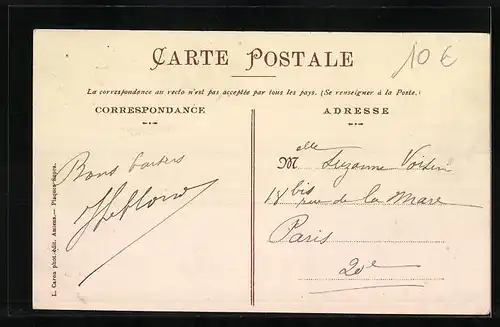 CARTE POSTALE
10 €
La correspondance au recto n'est pas acceptée par tous les pays. (Se renseigner à la Poste.)
CORRESPONDANCE
Bons baisers
L. Caron phot.-édit. Amiens. — Plaques Supra.
ADRESSE
Melle Suzanne Voisin
18 bis rue de la Mare
Paris
20e